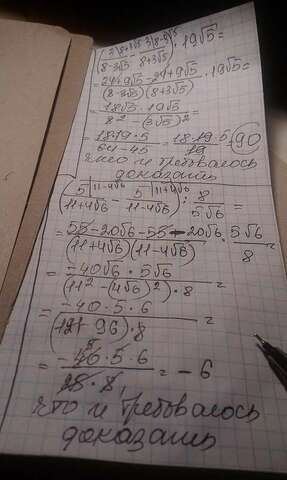 (3|8+3√5 / 8-3√5 - 3|8-3√5 / 8+3√5) · 19√5 =
= 24+9√5-24+9√5 / (8-3√5)(8+3√5) · 19√5 =
= 18√5 · 19√5 / 8² - (3√5)² =
= 18·19·5 / 64-45 = 18·19·5 / 19 = 90
что и требовалось
доказать
(5|11-4√6 / 11+4√6 - 5|11+4√6 / 11-4√6) : 8 / 5√6 =
= 55-20√6-55-20√6 / (11+4√6)(11-4√6) · 5√6 / 8 =
= -40√6 · 5√6 / (11² - (4√6)²) · 8 =
= -40·5·6 / (121-96)·8 =
= -40·5·6 / 25·8 = -6
что и требовалось
доказать